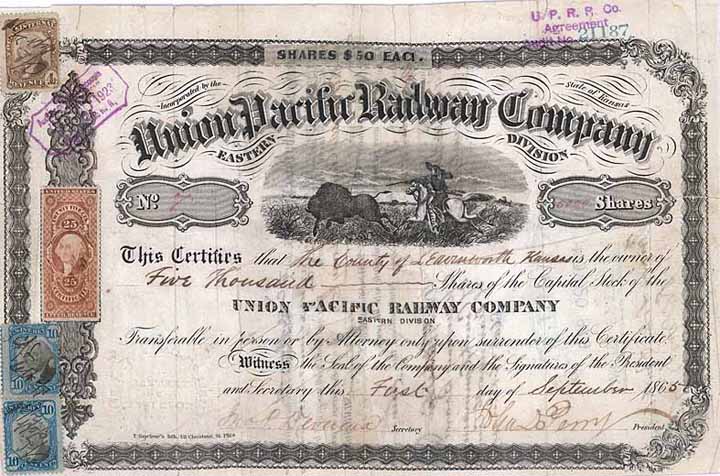 U. P. R. R. Co.
Agreement
Audit No. 21187
SHARES $50 EACH.
Incorporated by the State of Kansas
Union Pacific Railway Company
EASTERN DIVISION
No Shares
This Certifies that The County of Leavenworth Kansas is the owner of
Five Thousand Shares of the Capital Stock of the
UNION PACIFIC RAILWAY COMPANY
EASTERN DIVISION
Transferable in person or by Attorney only upon surrender of this Certificate.
Witness the Seal of the Company and the Signatures of the President
and Secretary this First day of September 1865
Secretary John D Perry President
25 25
10 10
10 10